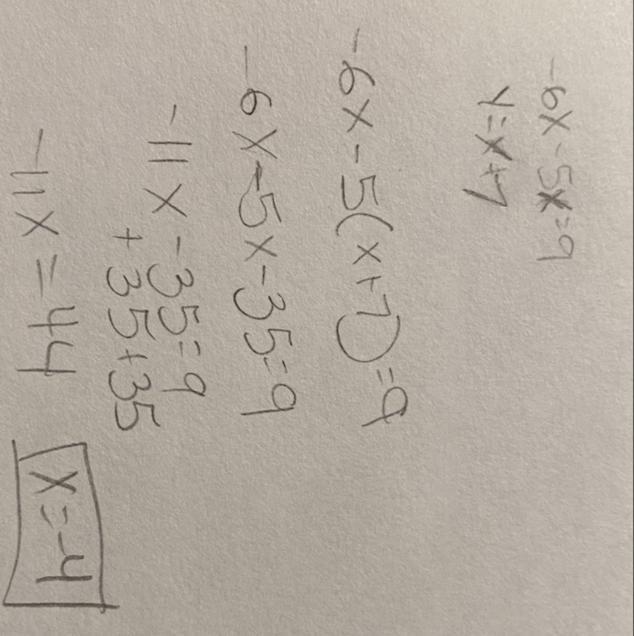 -6x-5x=9
y=x+7
-6x-5(x+7)=9
-6x-5x-35=9
-11x-35=9
+35+35
-11x=44
x=-4